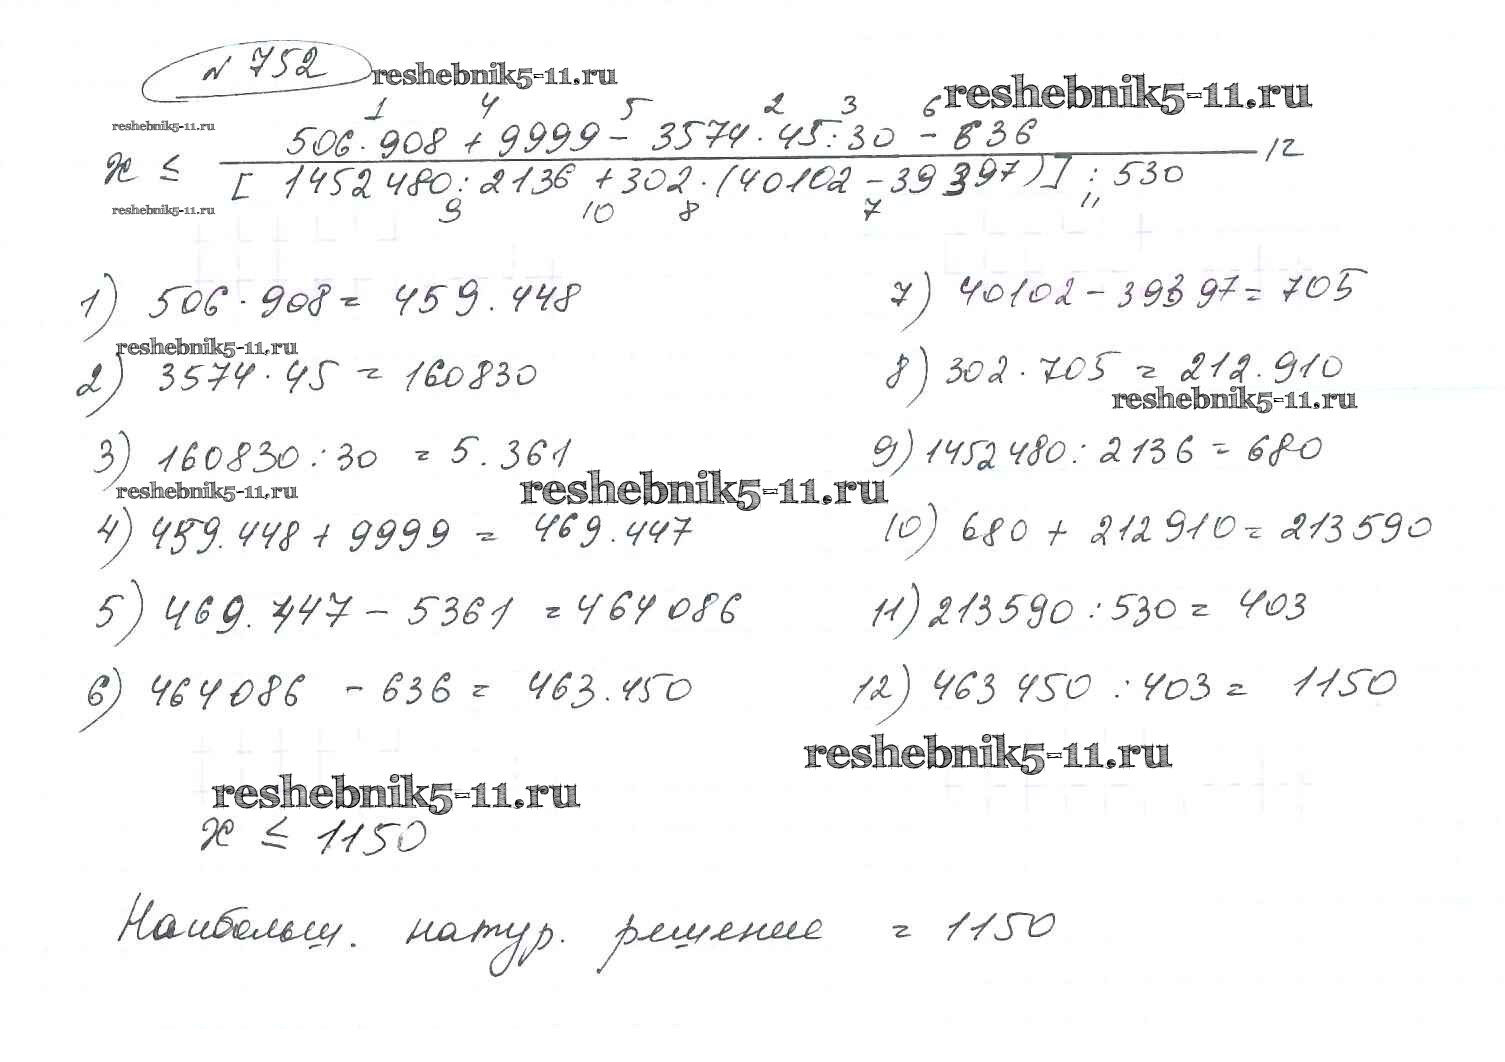 № 752 reshebnik5-11.ru
reshebnik5-11.ru
1 4 5 2 3 6
reshebnik5-11.ru
506 · 908 + 9999 - 3574 · 45 : 30 - 636
x ≤ 12
[ 1452480 : 2136 + 302 · (40102 - 39397) ] : 530
reshebnik5-11.ru
9 10 8 7 11
1) 506 · 908 = 459.448
7) 40102 - 39397 = 705
reshebnik5-11.ru
2) 3574 · 45 = 160830
8) 302 · 705 = 212.910
reshebnik5-11.ru
3) 160830 : 30 = 5.361
9) 1452480 : 2136 = 680
reshebnik5-11.ru
reshebnik5-11.ru
4) 459.448 + 9999 = 469.447
10) 680 + 212910 = 213590
5) 469.447 - 5361 = 464086
11) 213590 : 530 = 403
6) 464086 - 636 = 463.450
12) 463450 : 403 = 1150
reshebnik5-11.ru
reshebnik5-11.ru
x ≤ 1150
Наибольш. натур. решение = 1150